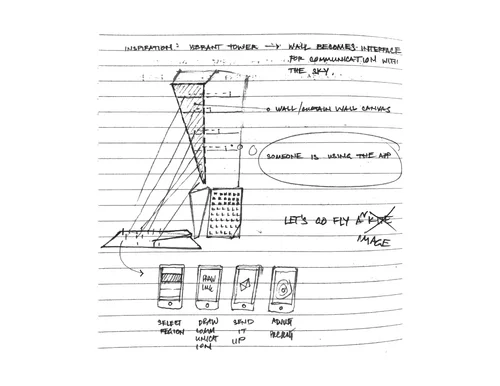 INSPIRATION: VIBRANT TOWER → WALL BECOMES INTERFACE
FOR COMMUNICATION WITH
THE SKY.
WALL/CURTAIN WALL CANVAS
SOMEONE IS USING THE APP
LET'S GO FLY AN
IMAGE
DRAW
ING
SELECT
REGION
DRAW
COMM
UNICAT
ION
SEND
IT
UP